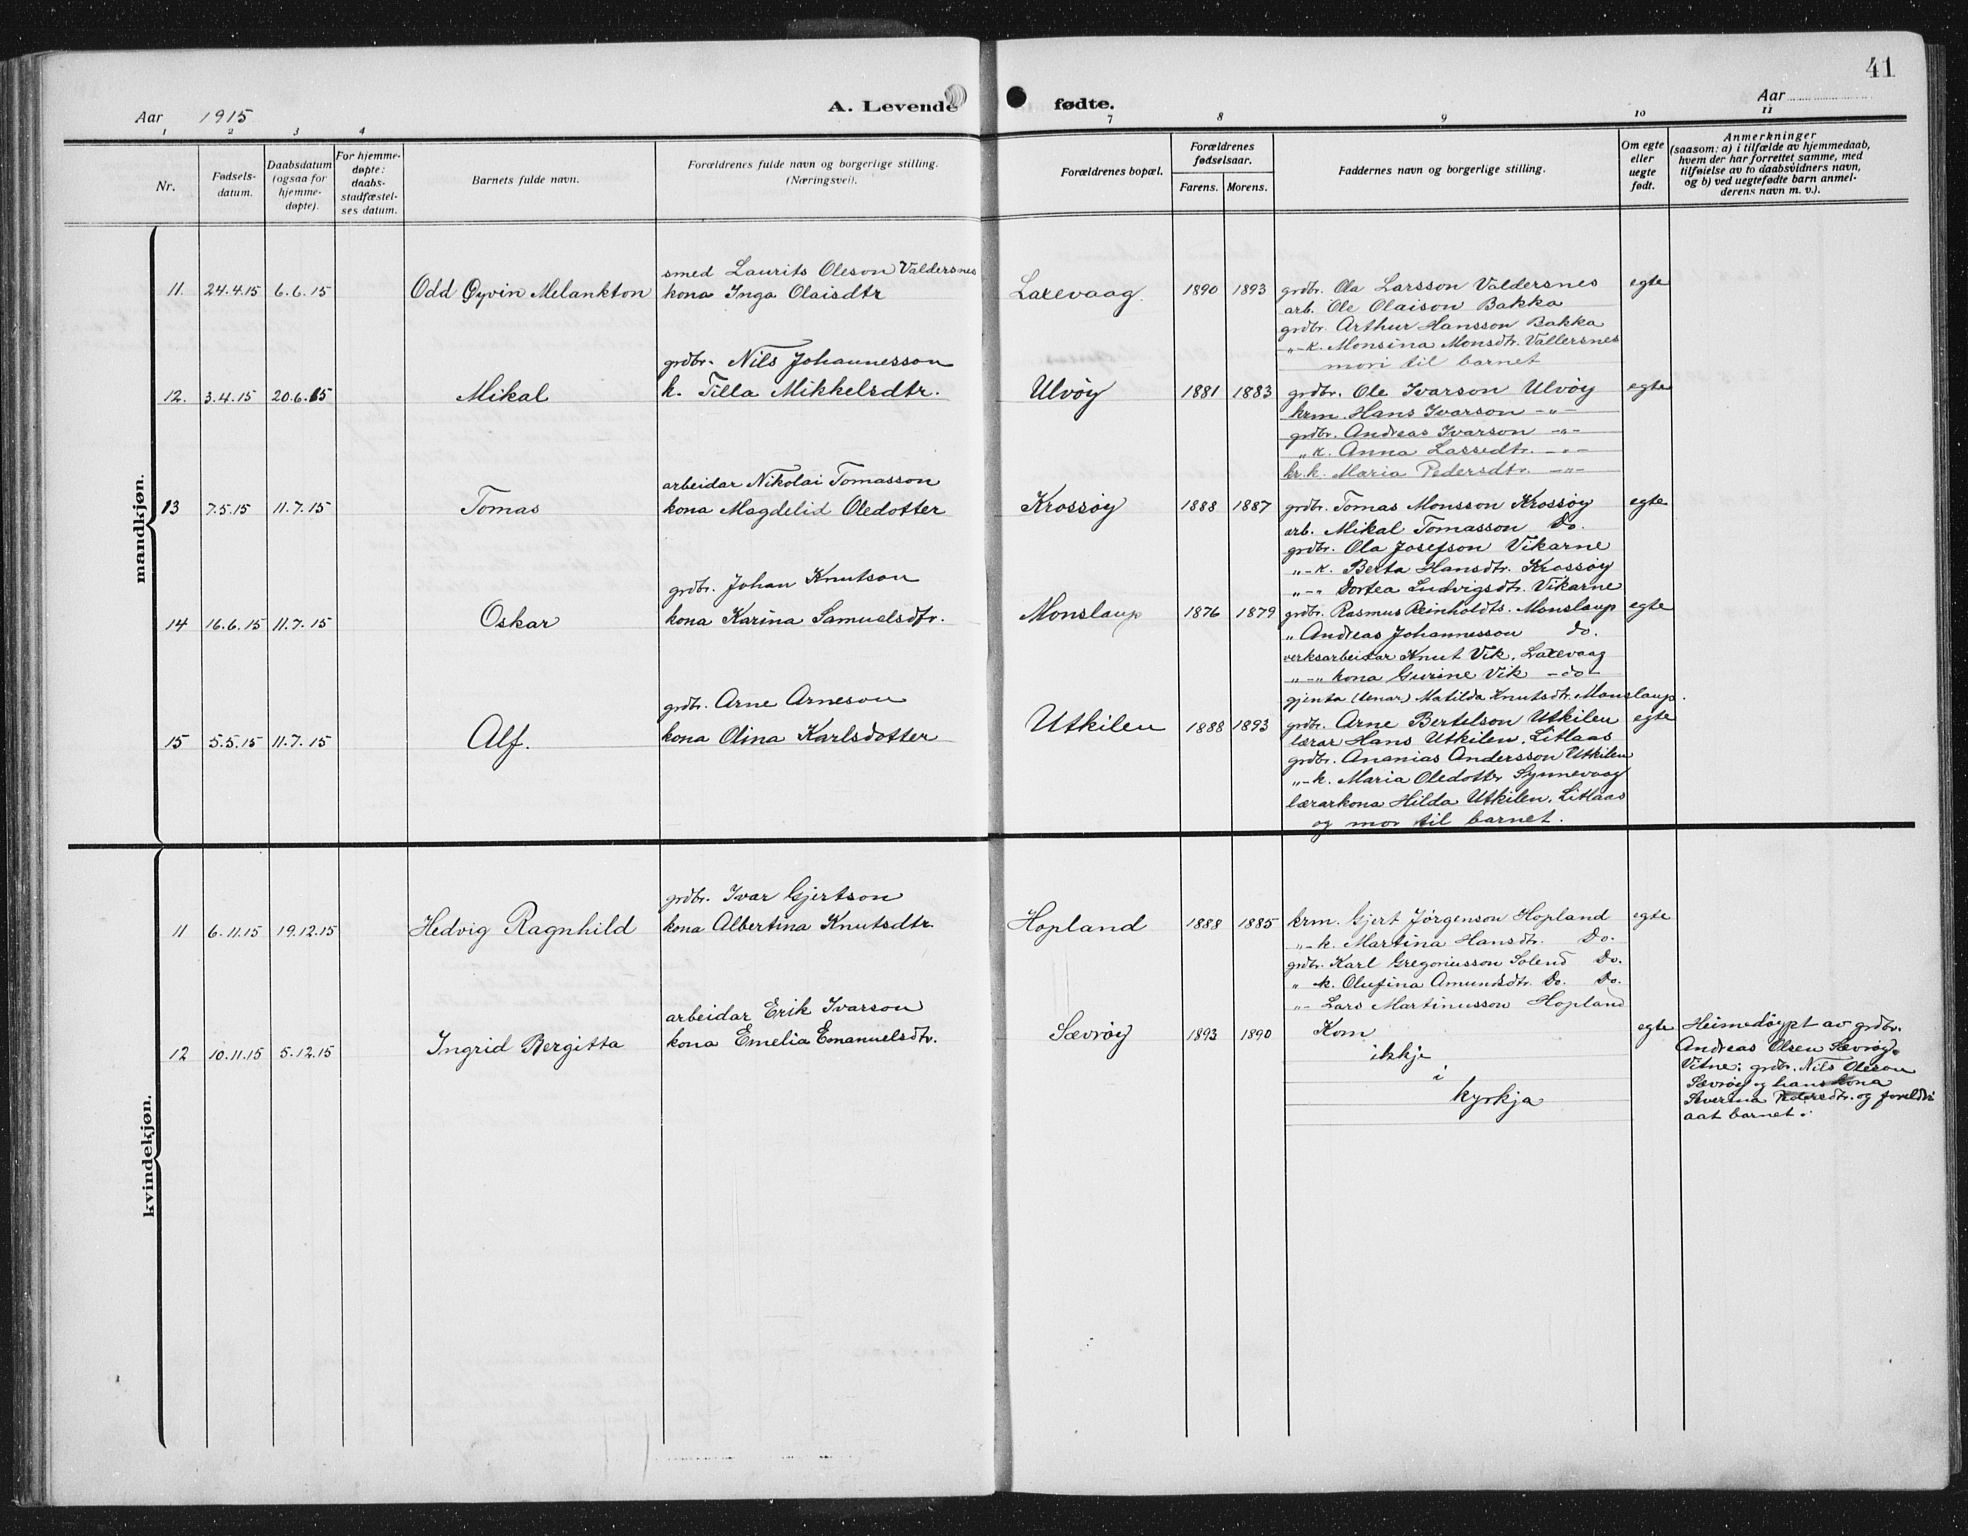 41
Aar 1915
A. Levende fødte.
Aar
1 2 3 4 7 8 9 10 11
Nr.
Fødsels-
datum.
Daabsdatum
(ogsaa for
hjemme-
døpte).
For hjemme-
døpte:
daabs-
stadfæstel-
ses datum.
Barnets fulde navn.
Forældrenes fulde navn og borgerlige stilling.
(Næringsvei).
Forældrenes bopæl.
Forældrenes
fødselsaar.
Farens. Morens.
Faddernes navn og borgerlige stilling.
Om egte
eller
uegte
født.
Anmerkninger
(saasom: a) i tilfælde av hjemmedaab,
hvem der har forrettet samme, med
tilføielse av to daabsvidners navn,
og b) ved uegtefødte barn anmel-
derens navn m. v.).
mandkjøn.
smed Laurits Oleson Valdersnes
11. 24.4.15 6.6.15 Odd Øyvin Melankton kona Inga Olaisdtr Laxevaag. 1890 1893 grdbr. Ola Larsson Valdersnes egte
arb. Ole Olaison Bakka
grdbr. Arthur Hansson Bakka
„-k. Monsina Monsdtr. Vallersnes
mori til barnet
grdbr. Nils Johannesson
12. 3.4.15 20.6.15 Mikal k. Tilla Mikkelsdtr. Ulvøy 1881 1883 grdbr. Ole Ivarson Ulvøy egte
krm. Hans Ivarson -„-
grdbr. Andreas Ivarson -„-
„ k. Anna Lassedtr. -„-
kr.k. Maria Pedersdtr. -„-
arbeidar Nikolai Tomasson
13 7.5.15 11.7.15 Tomas kona Magdelid Oledotter Krossøy 1888 1887 grdbr. Tomas Monsson Krossøy egte
arb. Mikal Tomasson Do.
grdbr. Ola Josefson Vikarne
„-k. Berta Hansdtr. Krossøy
„-„ Dortea Ludvigsdtr. Vikarne
grdbr. Johan Knutson
14 16.6.15 11.7.15 Oskar kona Karina Samuelsdtr. Monslaup 1876 1879 grdbr. Rasmus Reinholdts. Monslaup egte
„ Andreas Johannesson do.
verksarbeidar Knut Vik, Laxevaag
„-„ kona Gurine Vik -do-
gjenta (tenar) Matilda Knutsdtr. Monslaup.
grdbr. Arne Arneson
15 5.5.15 11.7.15 Alf. kona Olina Karlsdotter Utkilen 1888 1893 grdbr. Arne Bertelson Utkilen egte
lærar Hans Utkilen, Litlaas
grdbr. Ananias Andersson Utkilen
„-k. Maria Oledotter Synnevaag
lærarkona Hilda Utkilen, Litlaas
og mor til barnet.
kvindekjøn.
grdbr. Ivar Gjertson
11 6.11.15 19.12.15 Hedvig Ragnhild kona Albertina Knutsdtr. Hopland 1888 1885 krm. Gjert Jørgenson Hopland egte
„-k. Martina Hansdtr. Do.
grdbr. Karl Gregoriusson Solend Do.
„ k. Olufina Amundsdtr. Do. Do.
„- Lars Martinusson Hopland
arbeidar Erik Ivarson
12 10.11.15 5.12.15 Ingrid Bergitta kona Emelia Emanuelsdtr. Sævrøy 1893 1890 Kom egte
ikkje
i
kyrkja
Heimedøypt av grdbr.
Andreas Olsen Sævrøy.
Vitne: grdbr. Nils Oleson
Sævrøy og hans kona
Severina Pedersdtr. og foreldri
aat barnet.